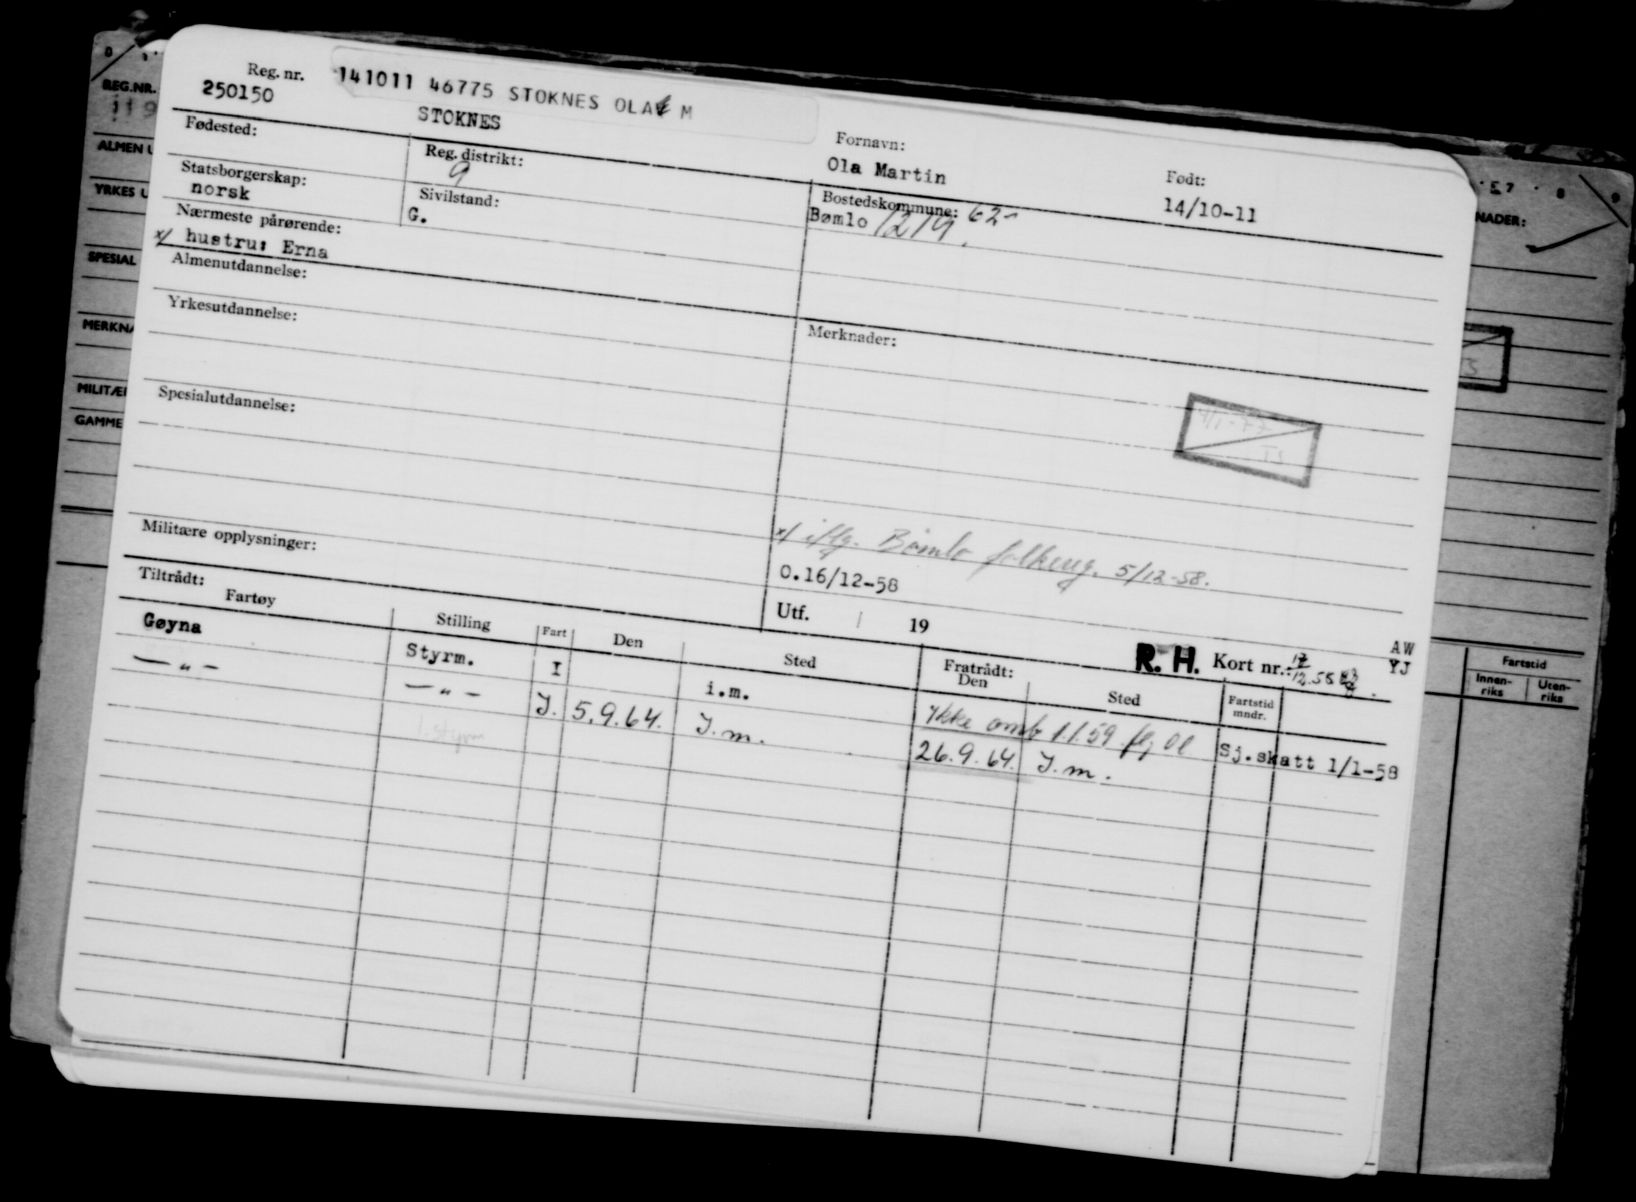 Reg. nr.
141011 46775 STOKNES OLA M
250150
STOKNES
Fornavn:
Ola Martin
Født:
14/10-11
Fødested:
Reg. distrikt:
9
Bostedskommune:
Bømlo 1219. 62
Statsborgerskap:
norsk
Sivilstand:
G.
Nærmeste pårørende:
x/ hustru: Erna
Almenutdannelse:
Yrkesutdannelse:
Merknader:
Spesialutdannelse:
x/ iflg. Bømlo folkereg. 5/12-58.
Militære opplysninger:
O.16/12-58
Utf. 19
R. H. Kort nr.:
AW
YJ
Tiltrådt:
Fartøy
Stilling
Fart
Den
Sted
Fratrådt:
Den
Sted
Fartstid
mndr.
Gøyna Styrm. I i.m. Ikke omb 1.1.59 Sj.skatt 1/1-58
— " — — " — I. 5.9.64. I.m. 26.9.64. I.m.
1. styrm
REG.NR.
119
ALMEN U
YRKES U
SPESIAL
MERKNA
MILITÆ
GAMME
NADER:
Fartstid
Innen-
riks
Uten-
riks